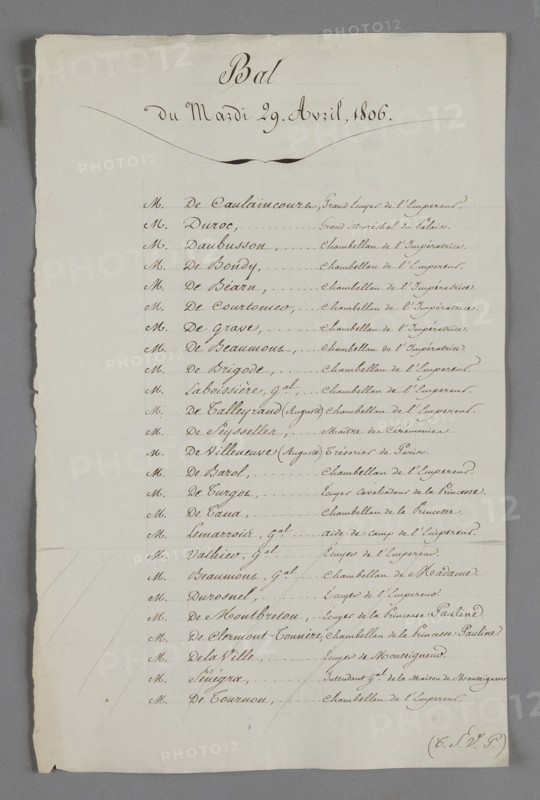 Bal
du Mardi 29. Avril, 1806.
M. De Caulaincourt, Grand Ecuyer de l'Empereur.
M. Duroc, Grand Maréchal du Palais.
M. Daubusson, Chambellan de l'Impératrice.
M. De Bondy, Chambellan de l'Empereur.
M. De Béarn, Chambellan de l'Impératrice.
M. De Courtomer, Chambellan de l'Impératrice.
M. De Grave, Chambellan de l'Impératrice.
M. De Beaumont, Chambellan de l'Impératrice.
M. De Brigode, Chambellan de l'Empereur.
M. Laboissière, Gal, Chambellan de l'Empereur.
M. De Talleyrand (Auguste) Chambellan de l'Empereur.
M. De Seyssellex, Maître des Cérémonies.
M. De Villeneuve (Auguste) Trésorier de Paris.
M. De Barol, Chambellan de l'Empereur.
M. De Turgot, Ecuyer cavalcadour de la Princesse.
M. De Tana, Chambellan de la Princesse.
M. Lemarrois, Gal aide-de-camp de l'Empereur.
M. Vathier, Gal Ecuyer de l'Empereur.
M. Beaumont, Gal Chambellan de Madame.
M. Durosnel, Ecuyer de l'Empereur.
M. De Montbreton, Ecuyer de la Princesse Pauline.
M. De Clermont-Tonnerre, Chambellan de la Princesse Pauline
M. De la Ville, Ecuyer de Monseigneur.
M. Sénégra, Intendant Gal de la Maison de Monseigneur
M. De Tournon, Chambellan de l'Empereur.
(T. S. V. P.)
PHOTO12